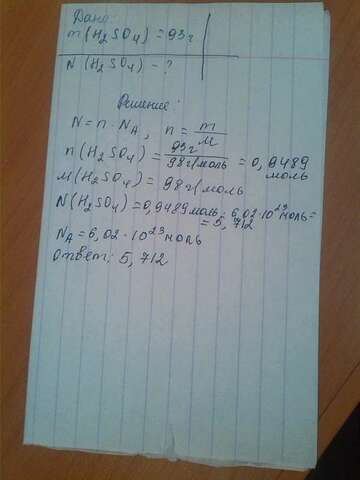 Дано:
m(H₂SO₄) = 93г
N(H₂SO₄) - ?
Решение:
N = n · NA, n = m/M
n(H₂SO₄) = 93г/98г/моль = 0,9489 моль
M(H₂SO₄) = 98г/моль
N(H₂SO₄) = 0,9489 моль · 6,02 · 10²³ моль =
= 5,712
NA = 6,02 · 10²³ моль
Ответ: 5,712